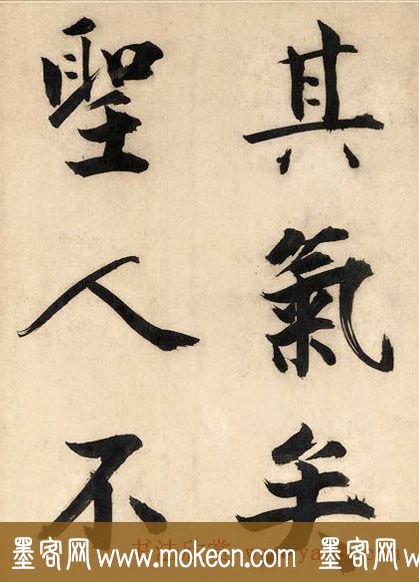 其氣矣
聖人不
墨客网 www.mokecn.com 墨客网